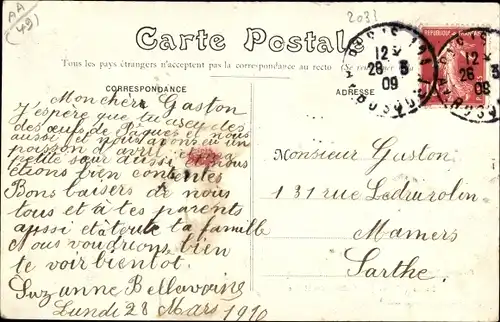 AA
(49)
2031
Carte Postale
Tous les pays étrangers n'acceptent pas la correspondance au recto (Se
CORRESPONDANCE
ADRESSE
12
28 - 3
09
12
28 3
09
Mon cher Gaston
J'espère que tu as eu des
des œufs de Pâques et nous
aussi et nous avons eu un
poisson d'avril et ma
petite sœur aussi et nous
étions bien contentes
Bons baisers de nous
tous et à tes parents
aussi et à toute ta famille
Nous voudrions bien
te voir bientôt.
Suzanne Bellavoine
Lundi 28 Mars 1910
Monsieur Gaston
131 rue Ledru rolin
Mamers
Sarthe.